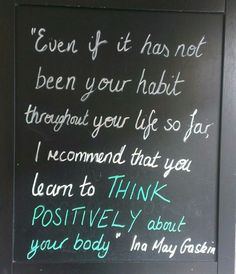 "Even if it has not
been your habit
throughout your life so far,
I recommend that you
learn to THINK
POSITIVELY about
your body" Ina May Gaskin